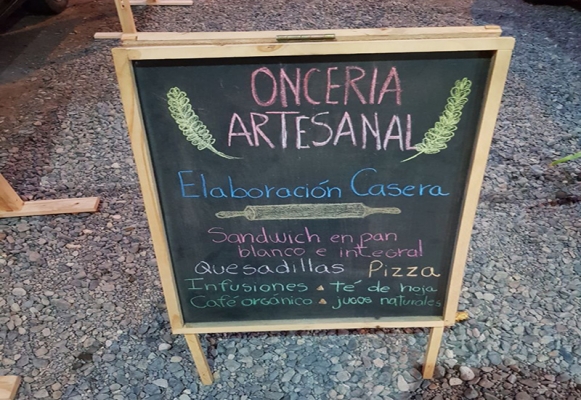 ONCERIA
ARTESANAL
Elaboración Casera
Sandwich en pan
blanco e integral
Quesadillas Pizza
Infusiones ▲ té de hoja
Café orgánico ▲ jugos naturales